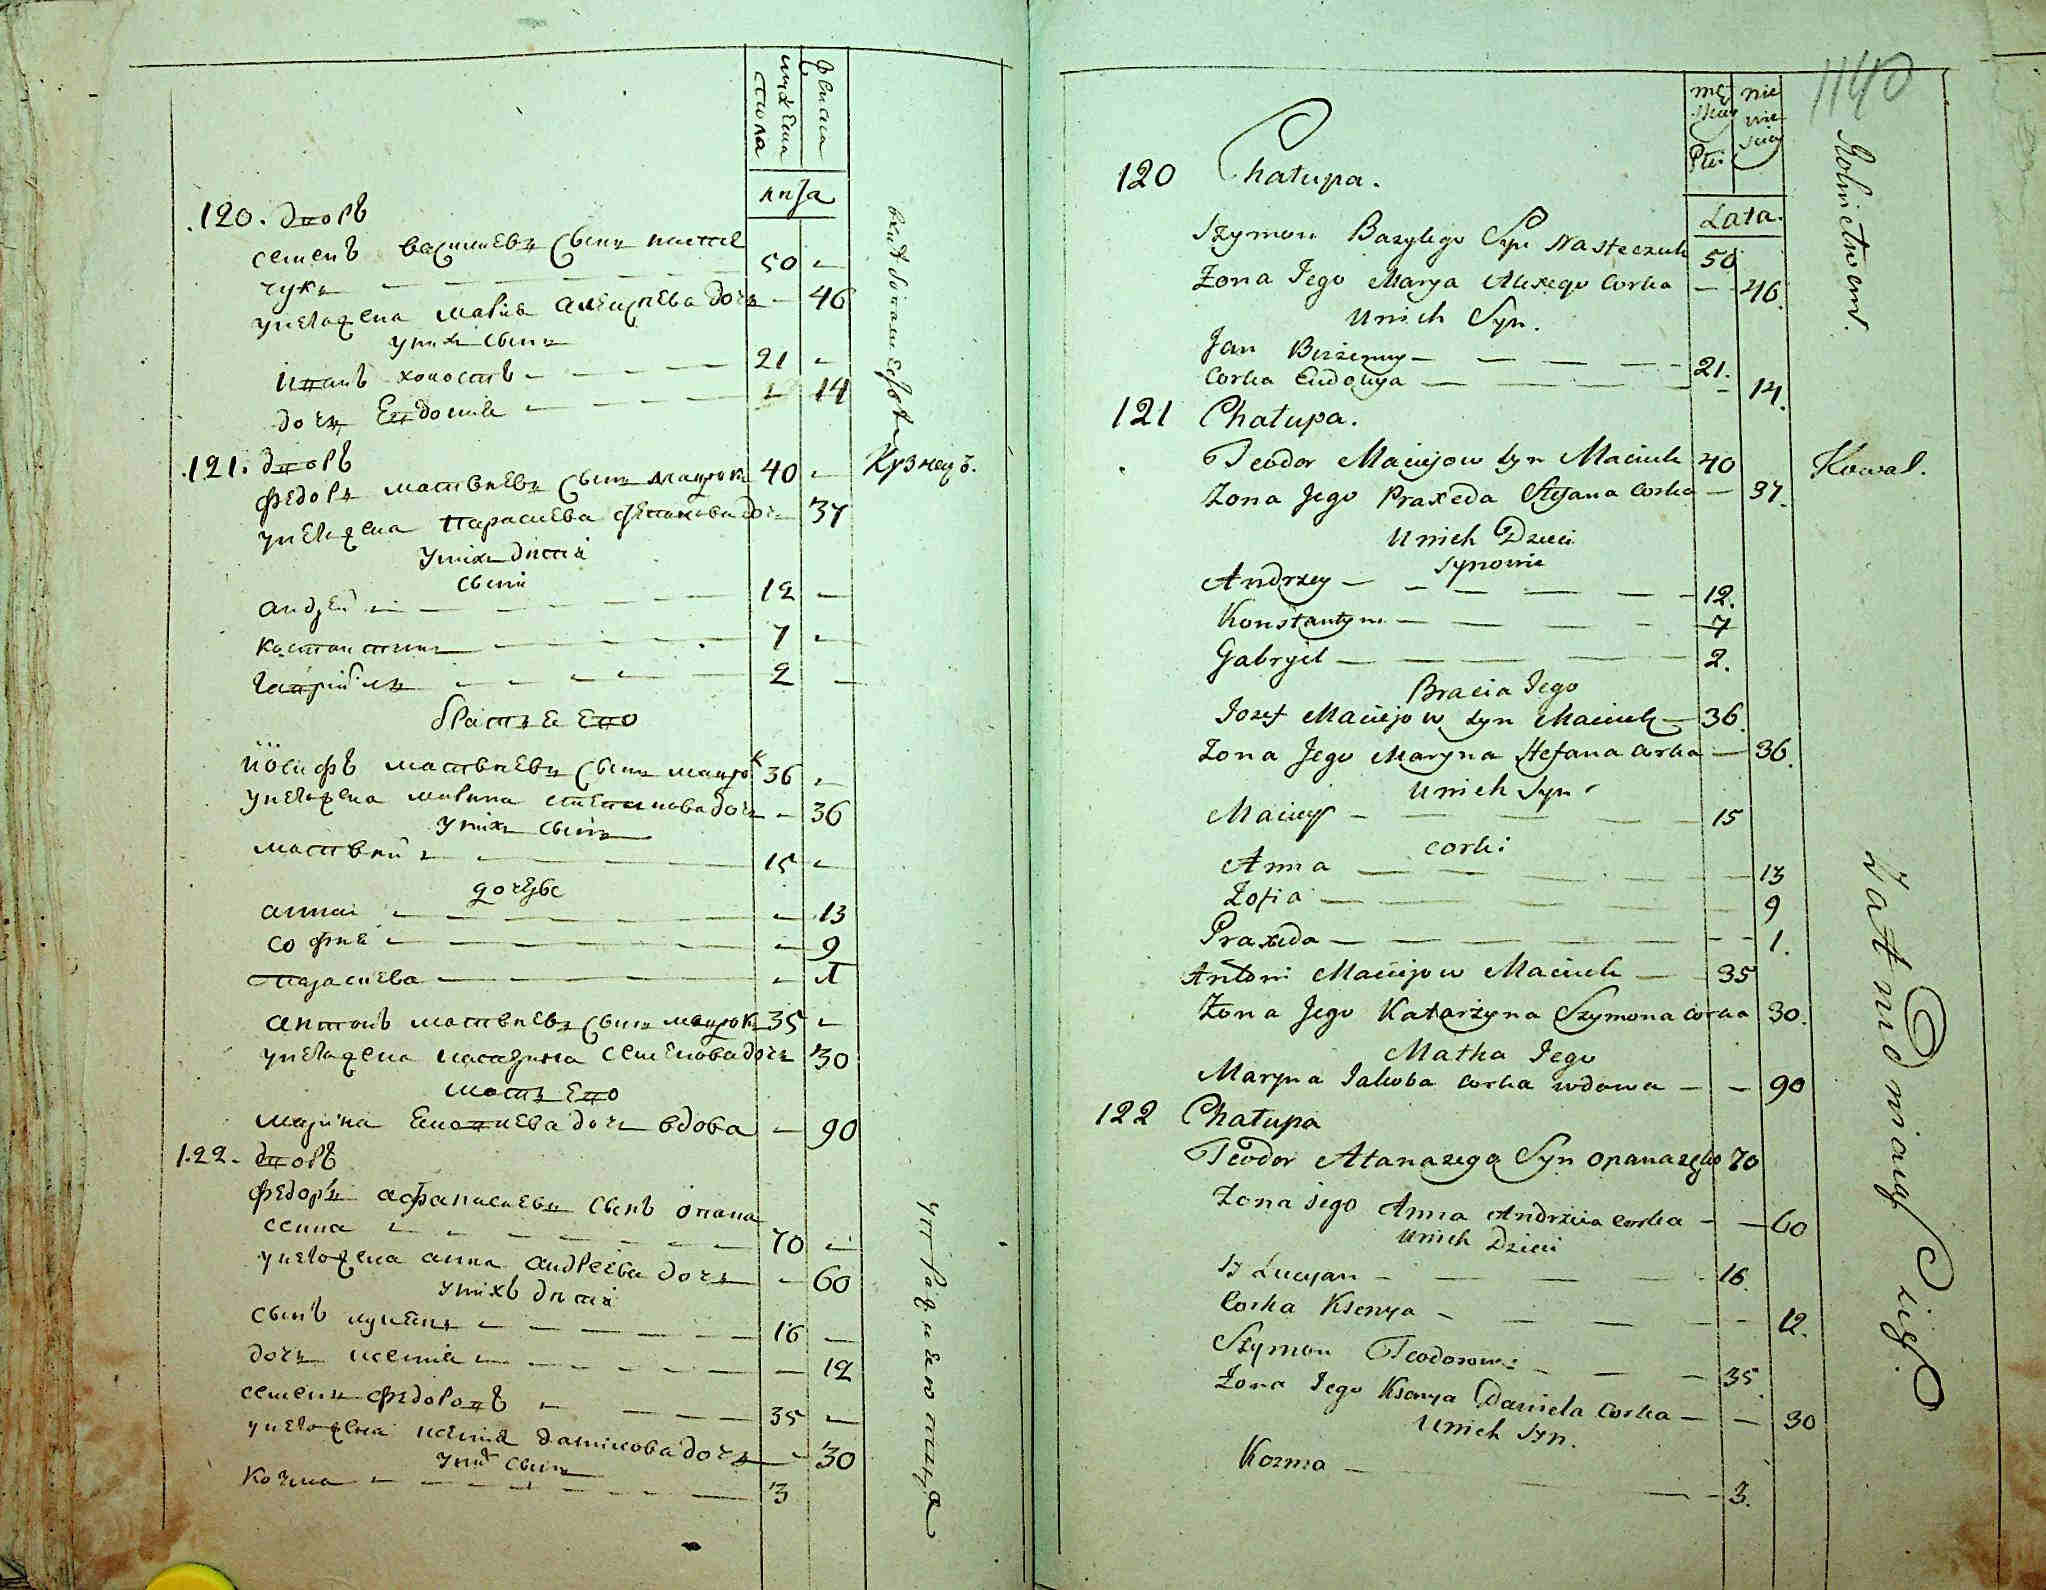 мужеска
женска
пола
лѣта
120. Дворъ
Семенъ Василиевъ сынъ Насте
чукъ — 50 —
у него жена Мария Алексиева дочь — 46
у нихъ сынъ
Иванъ холостъ — 21 —
дочь Евдокия — 14
121. Дворъ
Федоръ Матвиевъ сынъ Мацюкъ 40 — Кузнецъ.
у него жена Параскева Степанова дочь — 37
у нихъ дити
сыни
Андрей — 12 —
Костантинъ — 7 —
Гавриилъ — 2 —
братья его
Иосифъ Матвиевъ сынъ Мацюк 36 —
у него жена Марина Степанова дочь — 36
у нихъ сынъ
Матвий — 15 —
дочерѣ
Анна — 13
София — 9
Параскева — 1
Антонъ Матвиевъ сынъ Мацюкъ 35 —
у него жена Катерина Семенова дочь 30
мать его
Марина Яковлева дочь вдова — 90
122. Дворъ
Федоръ Афанасиевъ сынъ Опана
сенка — 70 —
у него жена Анна Андреева дочь — 60
у нихъ дити
сынъ Лукянъ — 16 —
дочь Ксения — 12
Семенъ Федоровъ — 35 —
у него жена Ксения Данилова дочь — 30
у них сынъ
Козма — 3
1140
mę
skiey
Płci
nie
wie
sciey
Lata.
Rolnictwem.
120 Chałupa.
Szymon Bazylego Syn Nasteczuk 50
Zona Jego Marya Alexego Corka — 46.
U nich Syn.
Jan Bezzenny — 21.
Corka Eudokya — 14.
121 Chałupa.
Teodor Maciejow Syn Maciuk 40 Kowal.
Zona Jego Praxeda Stefana Corka — 37.
U nich Dzieci
Synowie
Andrzey — 12.
Konstantyn — 7
Gabryel — 2.
Bracia Jego
Jozef Maciejow Syn Maciuk — 36.
Zona Jego Maryna Stefana Corka — 36.
U nich Syn
Maciey — 15
Corki
Anna — 13
Zofia — 9
Praxeda — 1.
Antoni Maciejow Maciuk — 35
Zona Jego Katarzyna Szymona Corka 30.
Matka Jego
Maryna Jakoba Corka wdowa — 90
122 Chałupa
Teodor Atanazego Syn Opanazenko 70
Zona Jego Anna Andrzeia Corka — 60
U nich Dzieci
S Lucyan — 16.
Corka Ksenya — 12.
Szymon Teodorow — 35.
Zona Jego Ksenya Daniela Corka — 30
U nich Syn.
Kozma — 3.